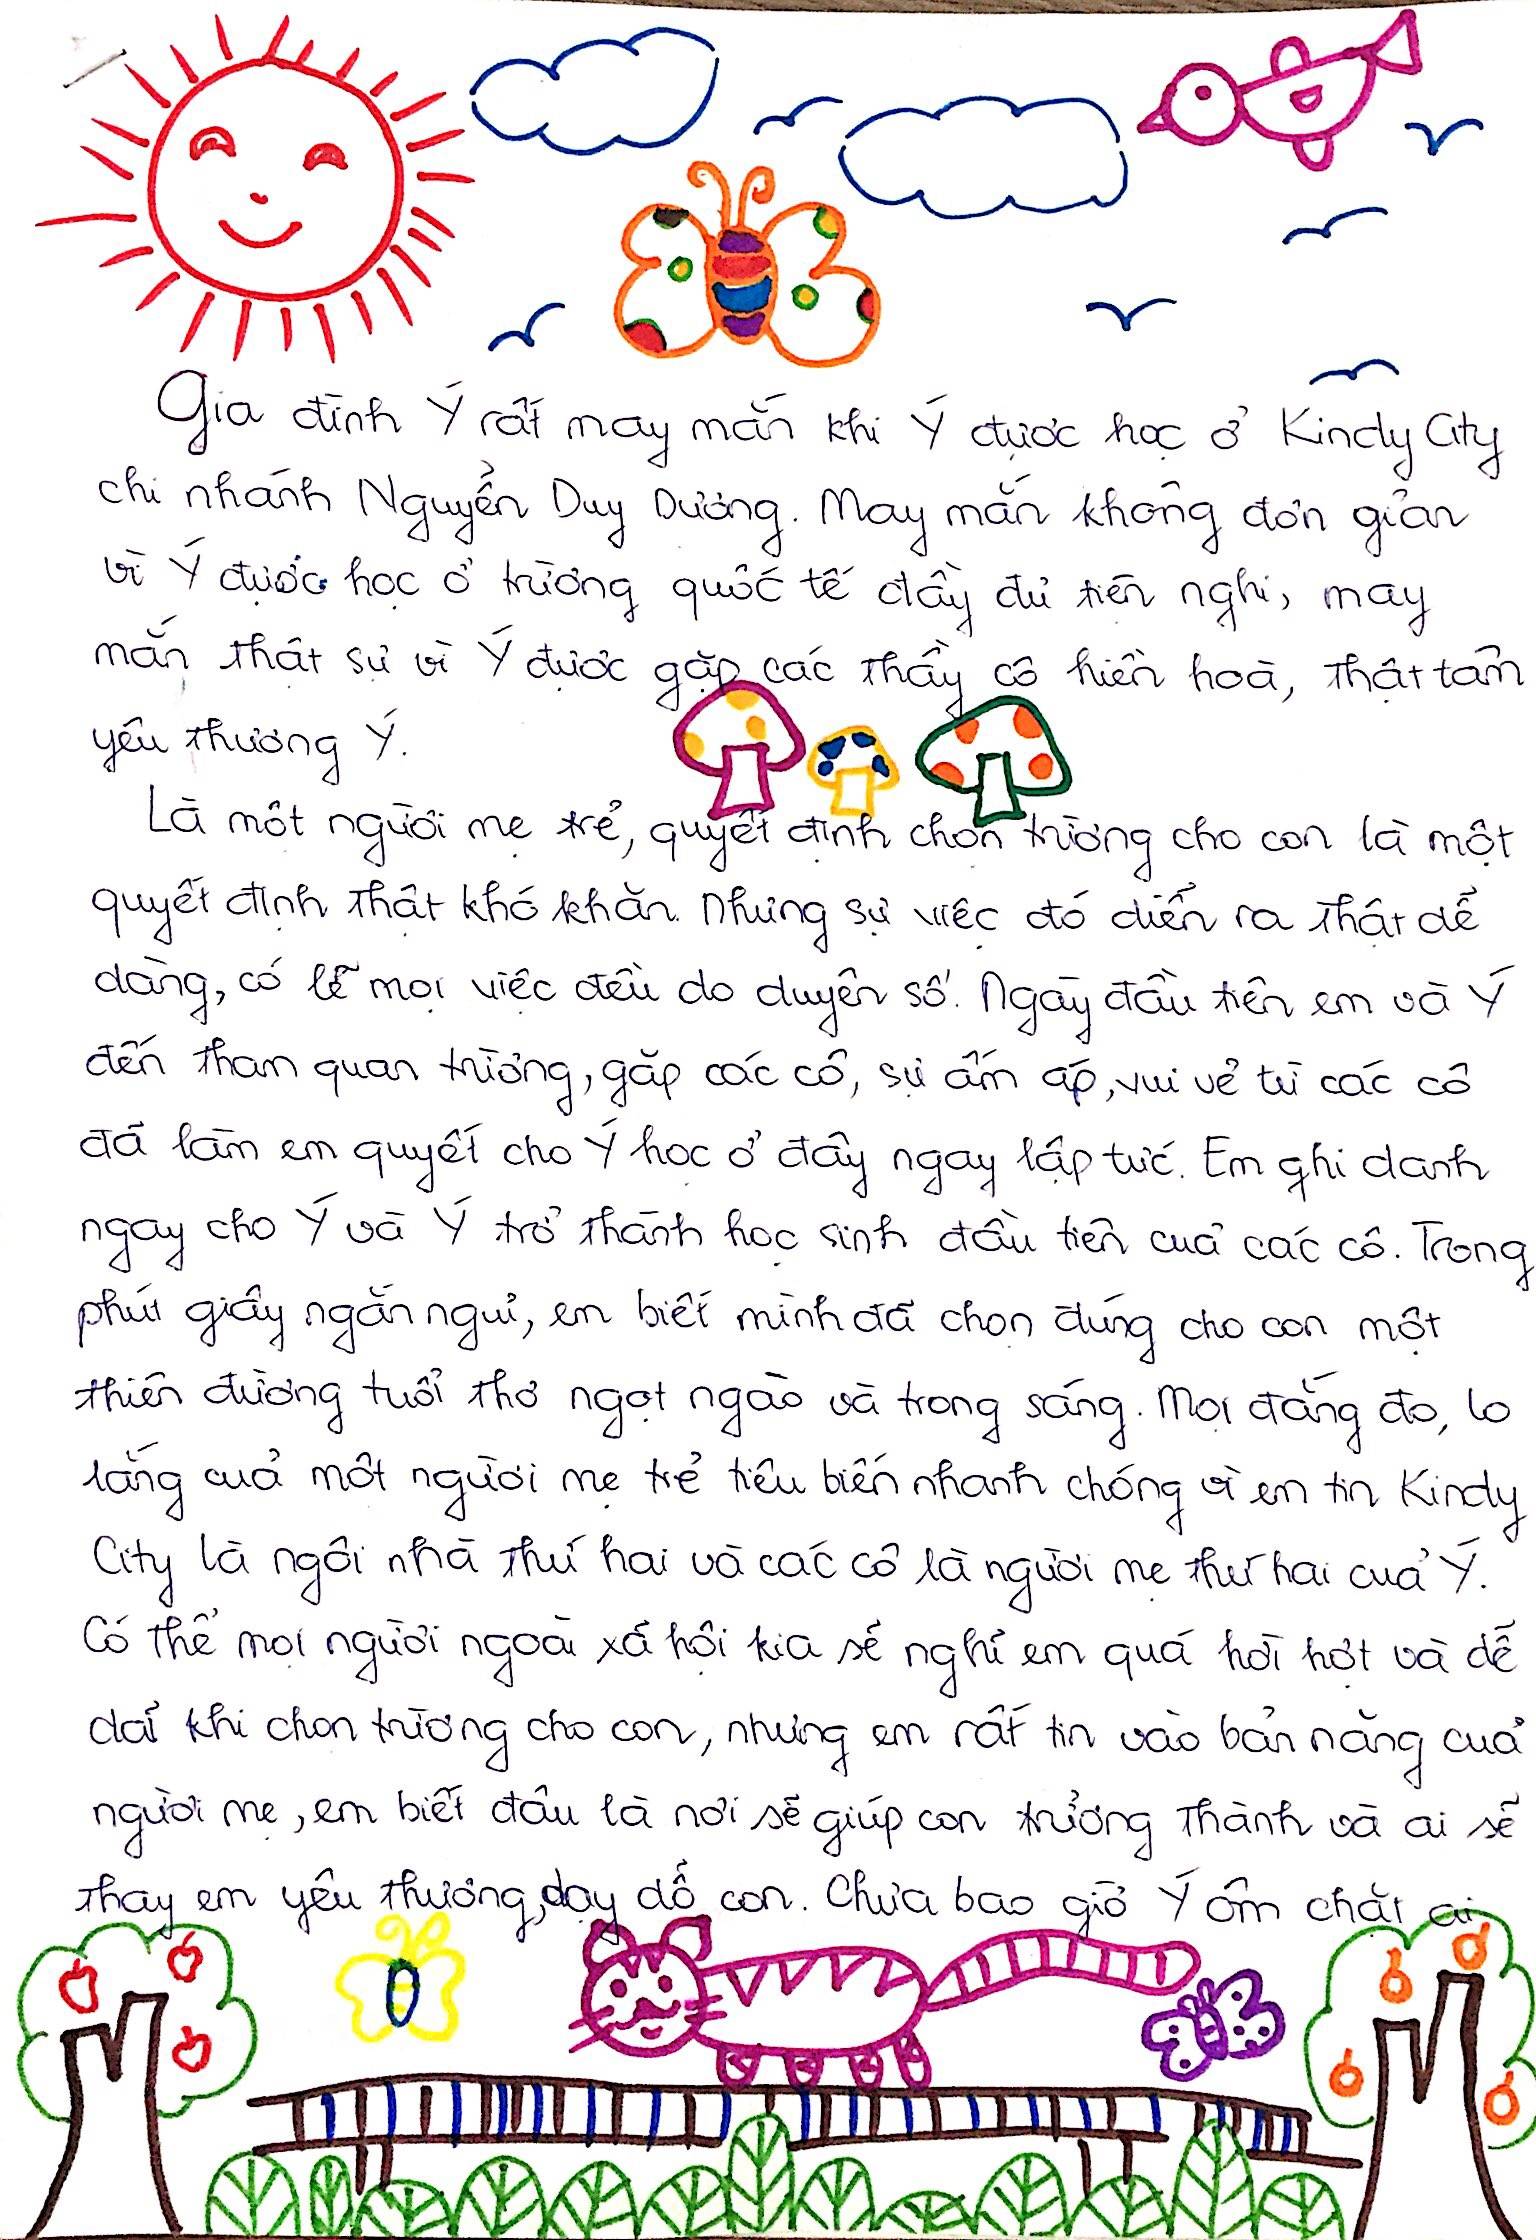 Gia đình Ý rất may mắn khi Ý được học ở Kindy City
chi nhánh Nguyển Duy Dương. May mắn không đơn giản
vì Ý được học ở trường quốc tế đầy đủ tiện nghi, may
mắn thật sự vì Ý được gặp các thầy cô hiền hoà, thật tâm
yêu thương Ý.
Là một người mẹ trẻ, quyết định chọn trường cho con là một
quyết định thật khó khăn. Nhưng sự việc đó diễn ra thật dễ
dàng, có lẽ mọi việc đều do duyên số. Ngày đầu tiên em và Ý
đến tham quan trường, gặp các cô, sự ấm áp, vui vẻ từ các cô
đã làm em quyết cho Ý học ở đây ngay lập tức. Em ghi danh
ngay cho Ý và Ý trở thành học sinh đầu tiên của các cô. Trong
phút giây ngắn ngủi, em biết mình đã chọn đúng cho con một
thiên đường tuổi thơ ngọt ngào và trong sáng. Mọi đắng đo, lo
lắng của một người mẹ trẻ tiêu biến nhanh chóng vì em tin Kindy
City là ngôi nhà thứ hai và các cô là người mẹ thứ hai của Ý.
Có thể mọi người ngoài xã hội kia sẽ nghĩ em quá hời hợt và dễ
dãi khi chọn trường cho con, nhưng em rất tin vào bản năng của
người mẹ, em biết đâu là nơi sẽ giúp con trưởng thành và ai sẽ
thay em yêu thương, dạy dỗ con. Chưa bao giờ Ý ôm chặt ai